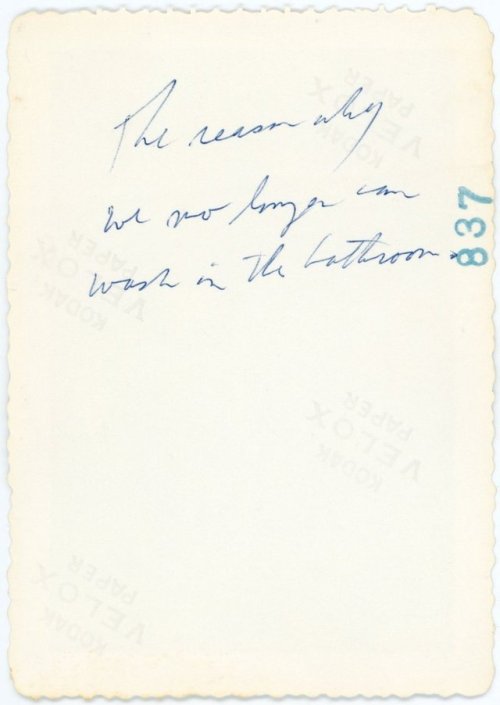 The reason why
we no longer can
wash in the bathroom.
837
KODAK
VELOX
PAPER
KODAK
VELOX
PAPER
KODAK
VELOX
PAPER
KODAK
VELOX
PAPER